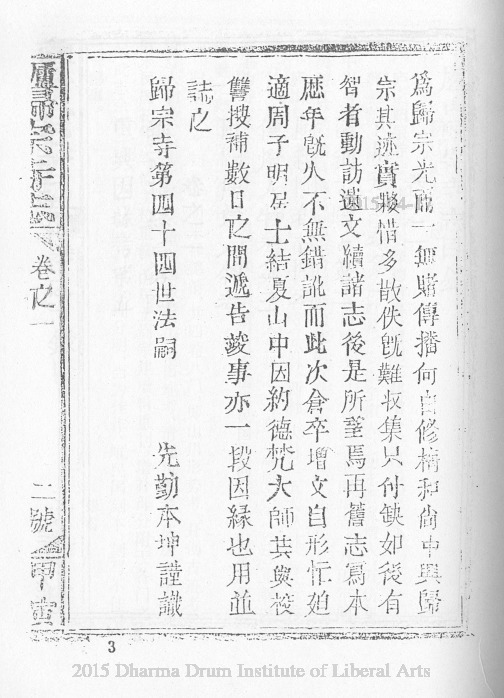 爲歸宗光而一無賭傳播何自修精和尚中興歸
宗其迹實夥惜多散佚旣難收集只付缺如後有
智者動訪遺文續諸志後是所望焉再舊志寫本
歷年旣久不無錯訛而此次倉卒增文自形怔廹
適周子明居士結夏山中因約德梵大師共與校
讐搜補數日之間遞告竣事亦一段因緣也用並
誌之
歸宗寺第四十四世法嗣 先勤本坤謹識
廬山歸宗寺志 卷之一 二號
3
2015 Dharma Drum Institute of Liberal Arts